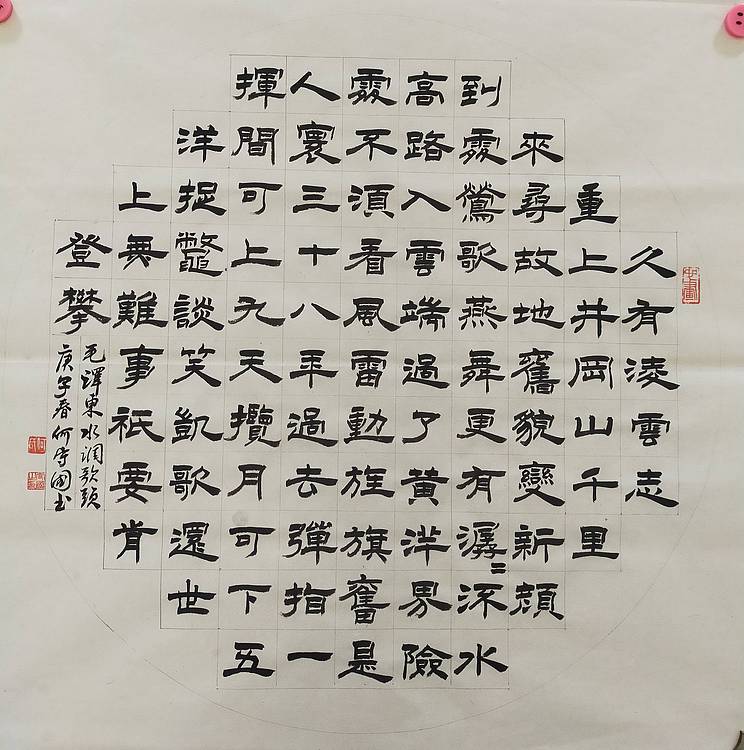 久有凌雲志
重上井岡山千里
來尋故地舊貌變新顏
到處鶯歌燕舞更有潺〻流水
高路入雲端過了黃洋界險
處不須看風雷動旌旗奮是
人寰三十八年過去彈指一
揮間可上九天攬月可下五
洋捉鱉談笑凱歌還世
上無難事祇要肯
登攀
毛澤東水調歌頭
庚子春何國书